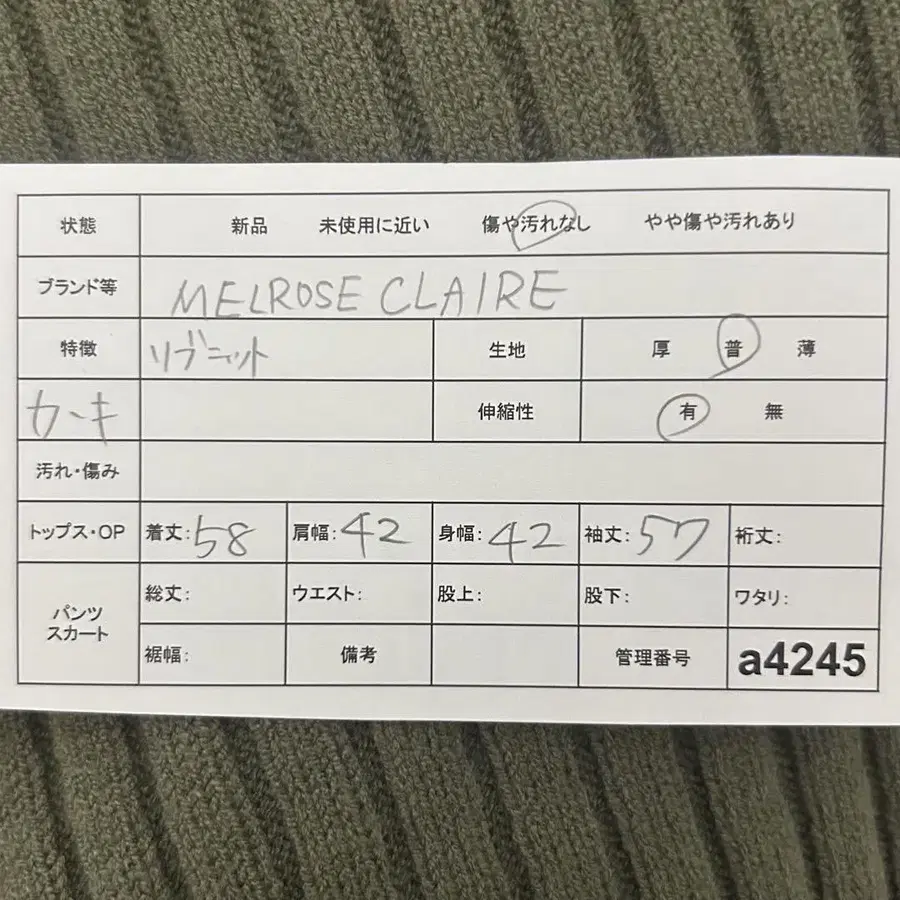 状態 新品 未使用に近い 傷や汚れなし やや傷や汚れあり
ブランド等 MELROSE CLAIRE
特徴 リブニット 生地 厚 普 薄
カーキ 伸縮性 有 無
汚れ・傷み
トップス・OP 着丈:58 肩幅:42 身幅:42 袖丈:57 裄丈:
パンツ
スカート
総丈: ウエスト: 股上: 股下: ワタリ:
裾幅: 備考 管理番号 a4245